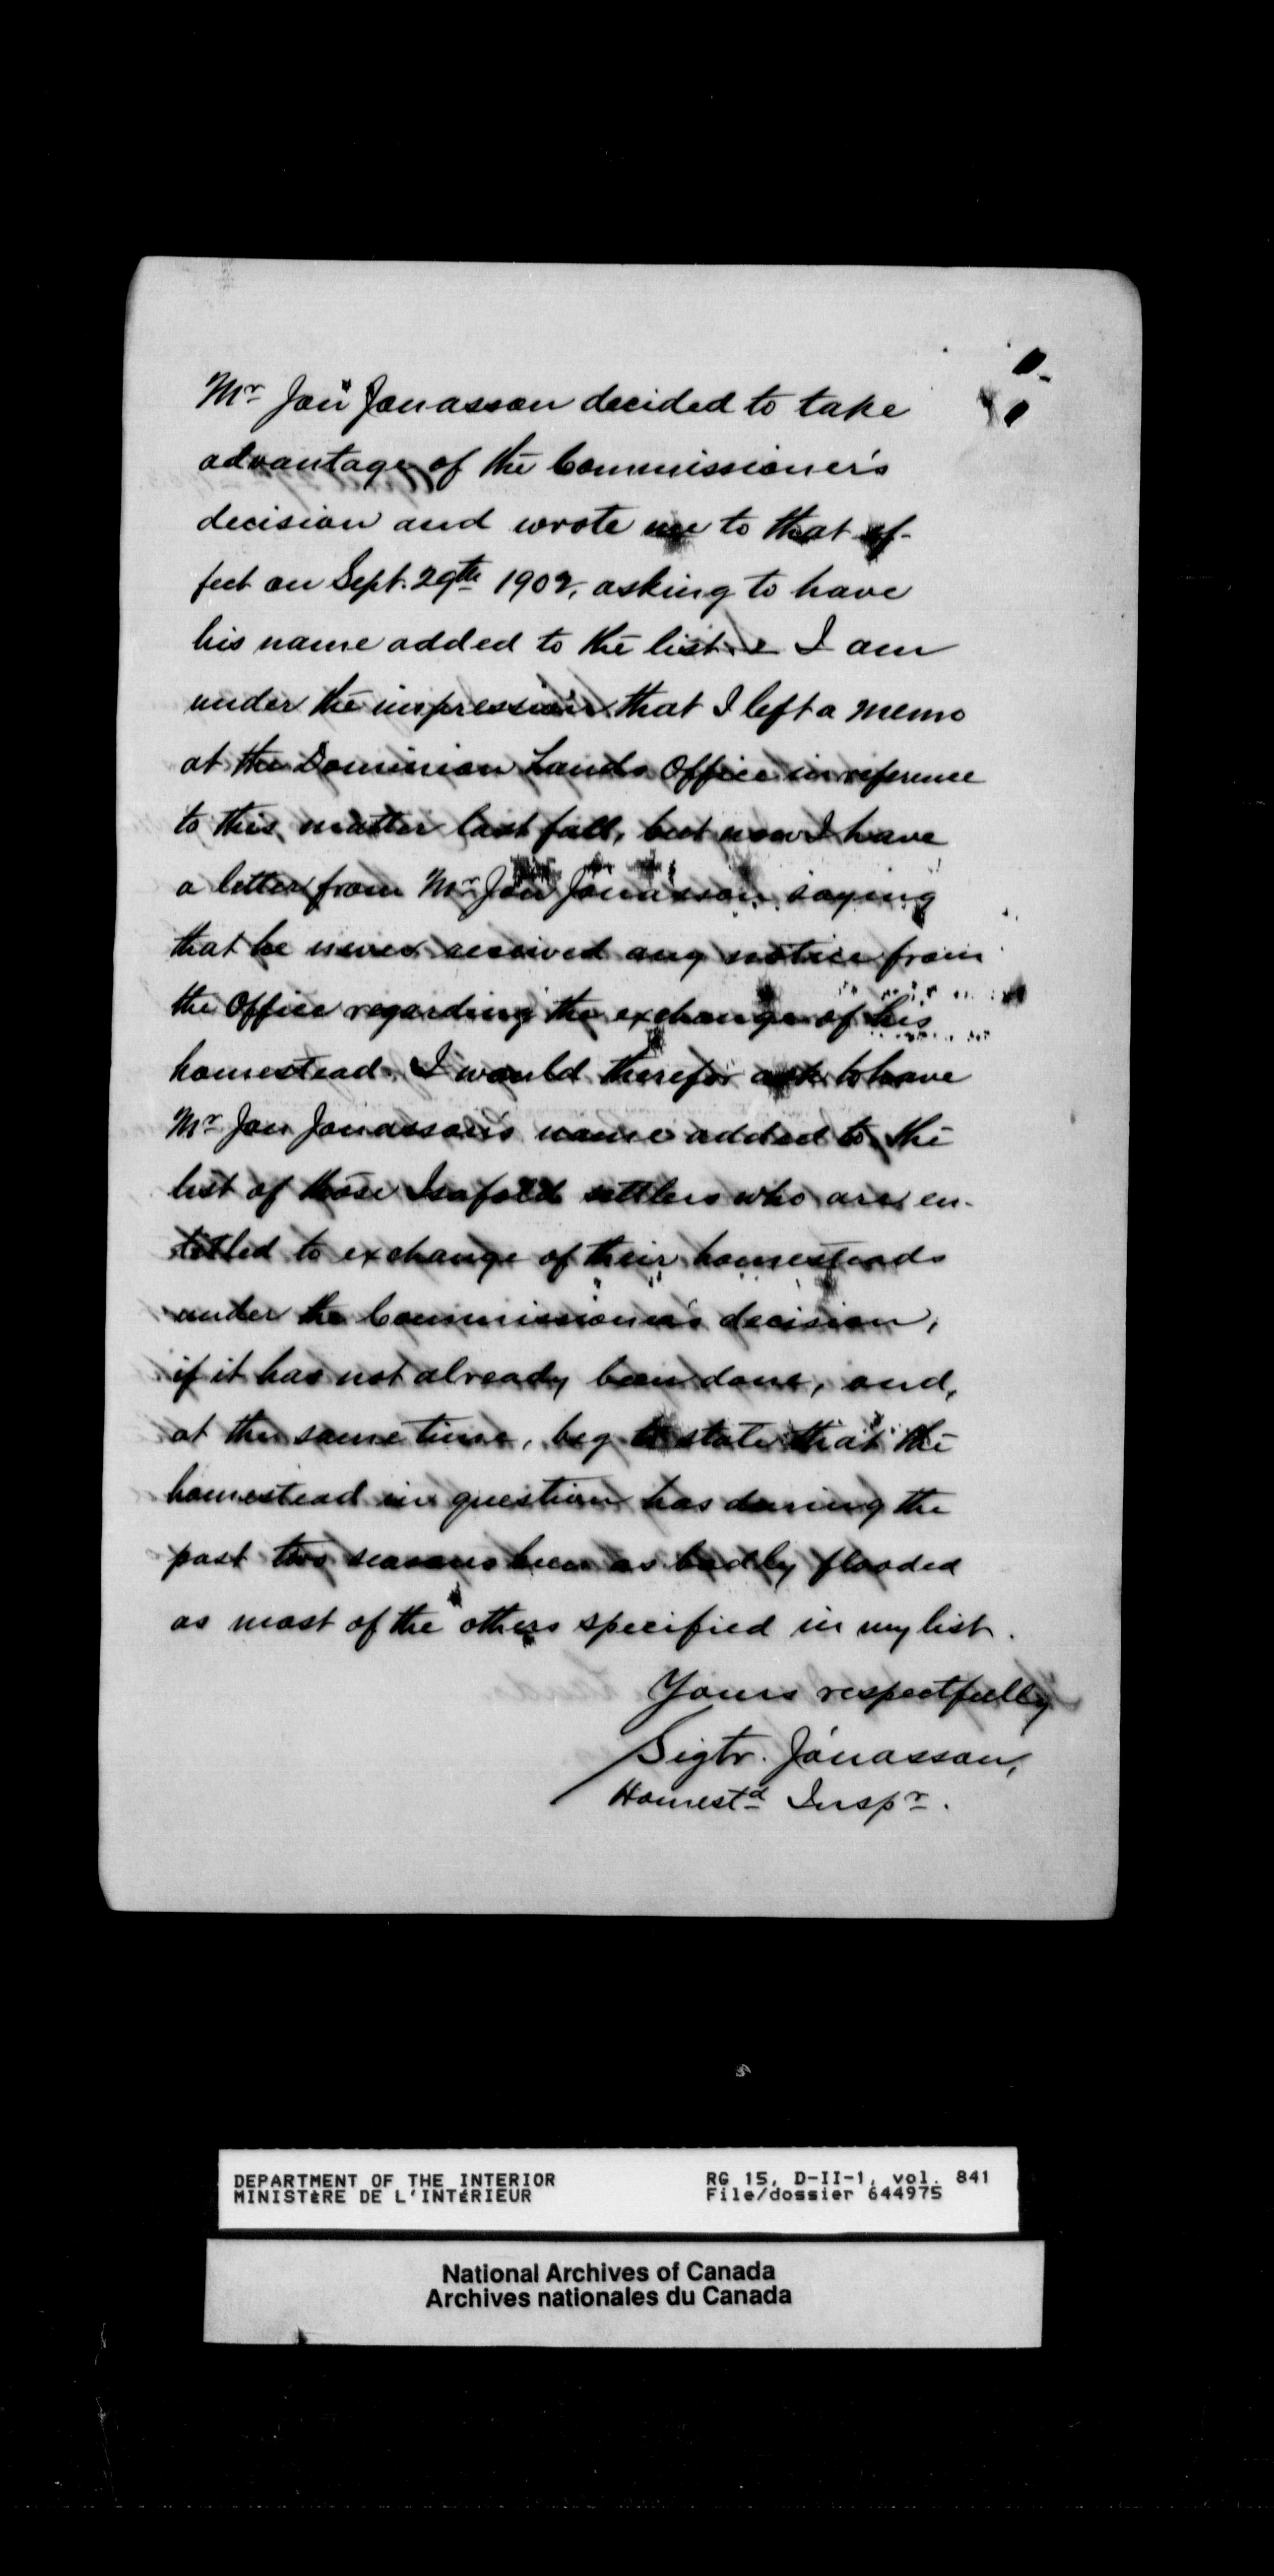 Mr Jón Jónasson decided to take
advantage of the Commissioner's
decision and wrote me to that ef-
fect on Sept. 29th 1902, asking to have
his name added to the list. I am
under the impression that I left a memo
at the Dominion Lands Office in reference
to this matter last fall, but now I have
a letter from Mr Jón Jónasson saying
that he never received any notice from
the Office regarding the exchange of his
homestead. I would therefor ask to have
Mr Jon Jónasson's name added to the
list of those Isafold settlers who are en-
titled to exchange of their homesteads
under the Commissioner's decision,
if it has not already been done, and,
at the same time, beg to state that the
homestead in question has during the
past two seasons been as badly flooded
as most of the others specified in my list.
Yours respectfully
Sigtr. Jónasson,
Homestd Inspr.
DEPARTMENT OF THE INTERIOR
MINISTÈRE DE L'INTÉRIEUR
RG 15, D-II-1, vol. 841
File/dossier 644975
National Archives of Canada
Archives nationales du Canada